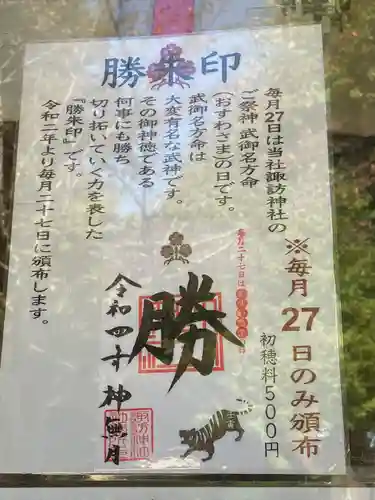 勝朱印
毎月27日は当社諏訪神社の
ご祭神 武御名方命
(おすわさま)の日です。
武御名方命は
大変有名な武神です。
その御神徳である
何事にも勝ち
切り拓いていく力を表した
『勝朱印』です。
令和二年より毎月二十七日に頒布します。
※毎月27日のみ頒布
初穂料500円
毎月二十七日は
勝
令和四年
神無月